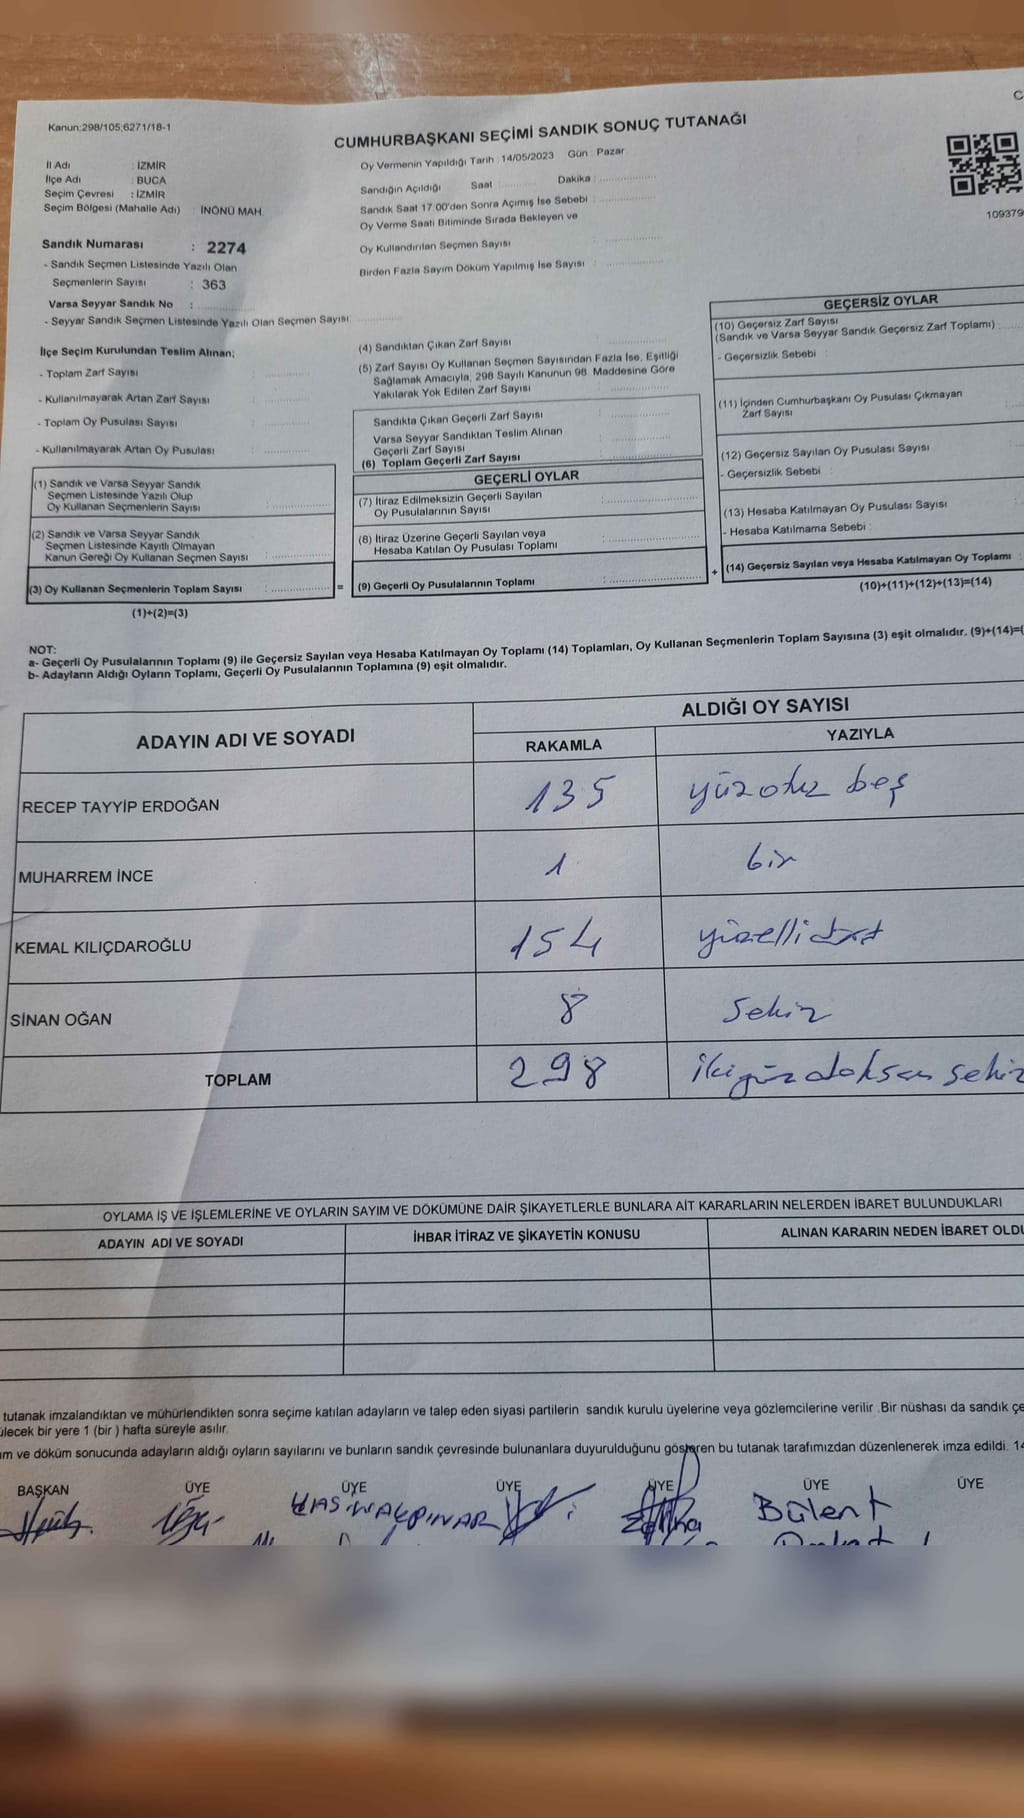 Kanun;298/105;6271/18-1
CUMHURBAŞKANI SEÇİMİ SANDIK SONUÇ TUTANAĞI
İl Adı : İZMİR
İlçe Adı : BUCA
Seçim Çevresi : İZMİR
Seçim Bölgesi (Mahalle Adı) : İNÖNÜ MAH.
Sandık Numarası : 2274
- Sandık Seçmen Listesinde Yazılı Olan
Seçmenlerin Sayısı : 363
Varsa Seyyar Sandık No :
- Seyyar Sandık Seçmen Listesinde Yazılı Olan Seçmen Sayısı:
Oy Vermenin Yapıldığı Tarih : 14/05/2023 Gün : Pazar
Sandığın Açıldığı Saat Dakika :
Sandık Saat 17:00'den Sonra Açımış İse Sebebi :
Oy Verme Saati Bitiminde Sırada Bekleyen ve
Oy Kullandırılan Seçmen Sayısı :
Birden Fazla Sayım Döküm Yapılmış İse Sayısı :
109379
İlçe Seçim Kurulundan Teslim Alınan;
- Toplam Zarf Sayısı :
- Kullanılmayarak Artan Zarf Sayısı :
- Toplam Oy Pusulası Sayısı :
- Kullanılmayarak Artan Oy Pusulası :
(1) Sandık ve Varsa Seyyar Sandık
Seçmen Listesinde Yazılı Olup
Oy Kullanan Seçmenlerin Sayısı :
(2) Sandık ve Varsa Seyyar Sandık
Seçmen Listesinde Kayıtlı Olmayan
Kanun Gereği Oy Kullanan Seçmen Sayısı :
(3) Oy Kullanan Seçmenlerin Toplam Sayısı :
(1)+(2)=(3)
(4) Sandıktan Çıkan Zarf Sayısı :
(5) Zarf Sayısı Oy Kullanan Seçmen Sayısından Fazla İse, Eşitliği
Sağlamak Amacıyla, 298 Sayılı Kanunun 98. Maddesine Göre
Yakılarak Yok Edilen Zarf Sayısı :
Sandıkta Çıkan Geçerli Zarf Sayısı :
Varsa Seyyar Sandıktan Teslim Alınan
Geçerli Zarf Sayısı :
(6) Toplam Geçerli Zarf Sayısı :
GEÇERLİ OYLAR
(7) İtiraz Edilmeksizin Geçerli Sayılan
Oy Pusulalarının Sayısı :
(8) İtiraz Üzerine Geçerli Sayılan veya
Hesaba Katılan Oy Pusulası Toplamı :
=
(9) Geçerli Oy Pusulalarının Toplamı :
GEÇERSİZ OYLAR
(10) Geçersiz Zarf Sayısı
(Sandık ve Varsa Seyyar Sandık Geçersiz Zarf Toplamı) :
- Geçersizlik Sebebi :
(11) İçinden Cumhurbaşkanı Oy Pusulası Çıkmayan
Zarf Sayısı
(12) Geçersiz Sayılan Oy Pusulası Sayısı
- Geçersizlik Sebebi :
(13) Hesaba Katılmayan Oy Pusulası Sayısı
- Hesaba Katılmama Sebebi :
+
(14) Geçersiz Sayılan veya Hesaba Katılmayan Oy Toplamı :
(10)+(11)+(12)+(13)=(14)
NOT:
a- Geçerli Oy Pusulalarının Toplamı (9) ile Geçersiz Sayılan veya Hesaba Katılmayan Oy Toplamı (14) Toplamları, Oy Kullanan Seçmenlerin Toplam Sayısına (3) eşit olmalıdır. (9)+(14)=(
b- Adayların Aldığı Oyların Toplamı, Geçerli Oy Pusulalarının Toplamına (9) eşit olmalıdır.
ADAYIN ADI VE SOYADI
ALDIĞI OY SAYISI
RAKAMLA YAZIYLA
RECEP TAYYİP ERDOĞAN 135 yüzotuz beş
MUHARREM İNCE 1 bir
KEMAL KILIÇDAROĞLU 154 yüzelli dört
SİNAN OĞAN 8 sekiz
TOPLAM 298 ikiyüz doksan sekiz
OYLAMA İŞ VE İŞLEMLERİNE VE OYLARIN SAYIM VE DÖKÜMÜNE DAİR ŞİKAYETLERLE BUNLARA AİT KARARLARIN NELERDEN İBARET BULUNDUKLARI
ADAYIN ADI VE SOYADI İHBAR İTİRAZ VE ŞİKAYETİN KONUSU ALINAN KARARIN NEDEN İBARET OLDU
tutanak imzalandıktan ve mühürlendikten sonra seçime katılan adayların ve talep eden siyasi partilerin sandık kurulu üyelerine veya gözlemcilerine verilir .Bir nüshası da sandık çe
ülecek bir yere 1 (bir ) hafta süreyle asılır.
ım ve döküm sonucunda adayların aldığı oyların sayılarını ve bunların sandık çevresinde bulunanlara duyurulduğunu gösteren bu tutanak tarafımızdan düzenlenerek imza edildi. 14
BAŞKAN ÜYE ÜYE ÜYE ÜYE ÜYE ÜYE
Bülent